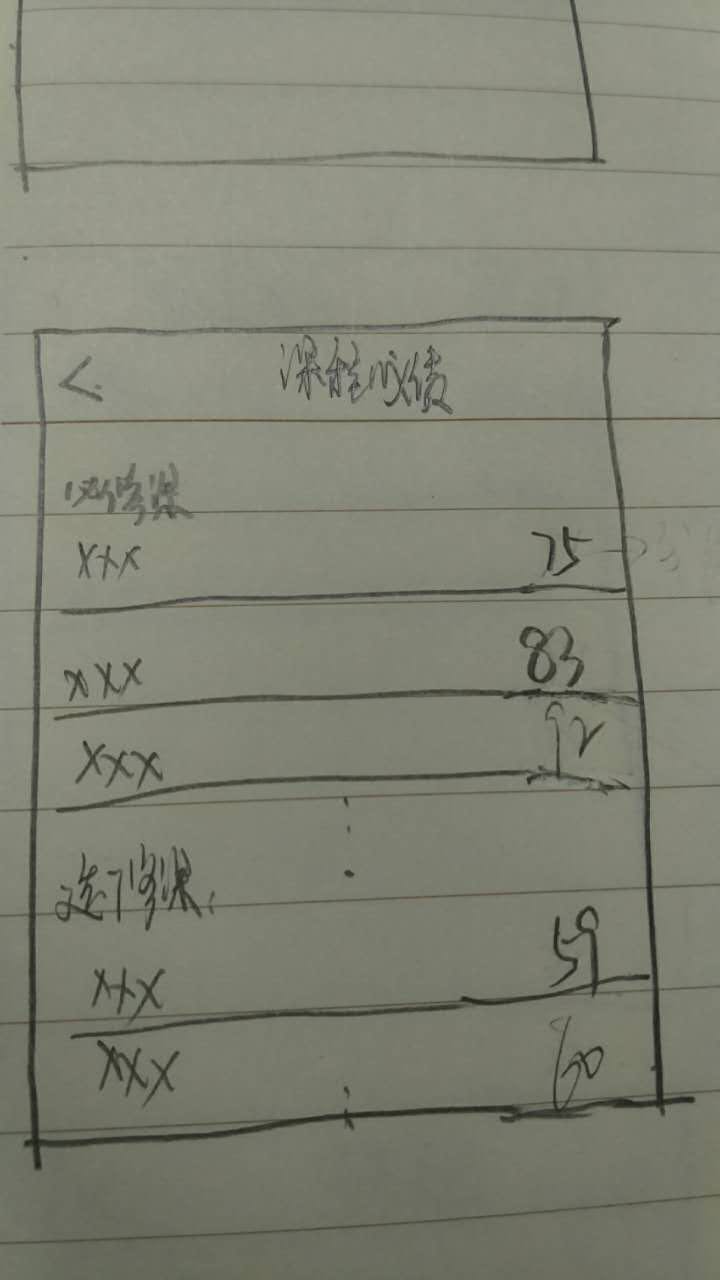 < 课程成绩
必修课
xxx 75
xxx 83
xxx 92
选修课
xxx 59
xxx 60